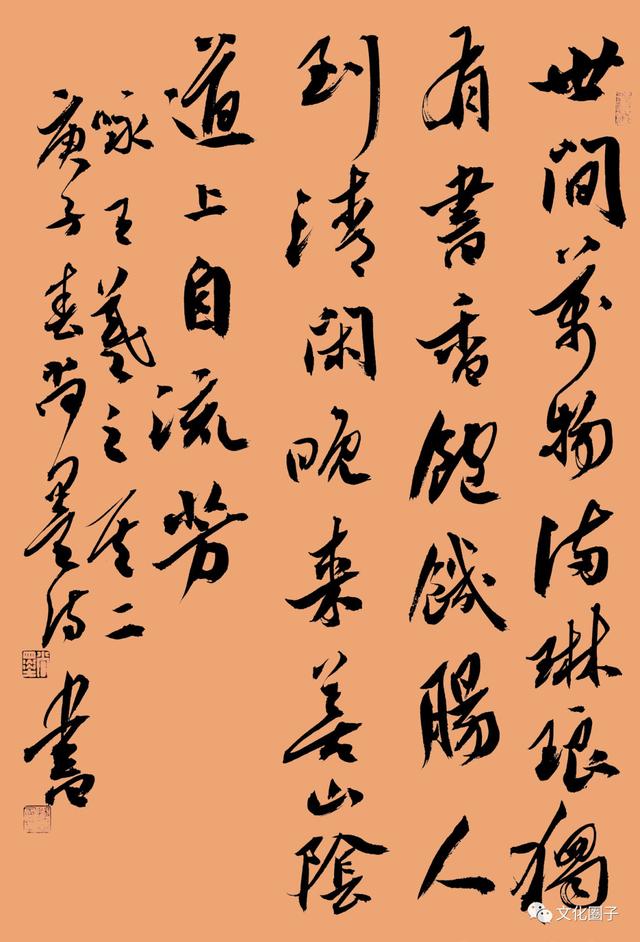 世間萬物滿琳琅獨
有書香飽餓腸人
到清閑晚來山陰
道上自流芳
詠王羲之其二
庚子春尚墨詩書
文化圈子